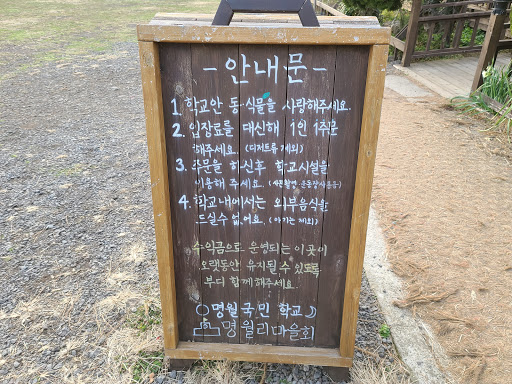 - 안내문 -
1. 학교안 동·식물을 사랑해주세요.
2. 입장료를 대신해 1인 1주문
해주세요. (디저트류 제외)
3. 주문을 하신후 학교시설을
이용해 주세요. (사진촬영·운동장사용등)
4. 학교내에서는 외부음식을
드실수 없어요. (아기는 제외)
수익금으로 운영되는 이곳이
오랫동안 유지될 수 있도록
부디 함께해주세요.
명월국민학교
명월리마을회